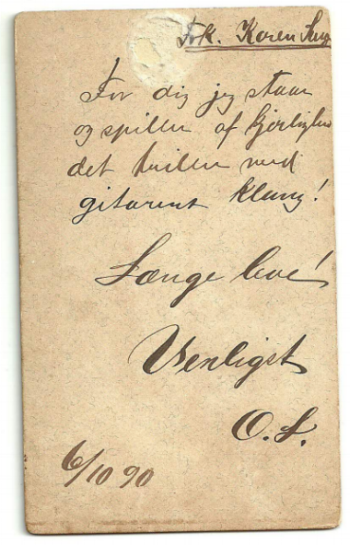 Frk. Karen
For dig jeg staar
og spiller af
det med
gitarens klang!
Længe leve!
Venligst
O. S.
6/10 90